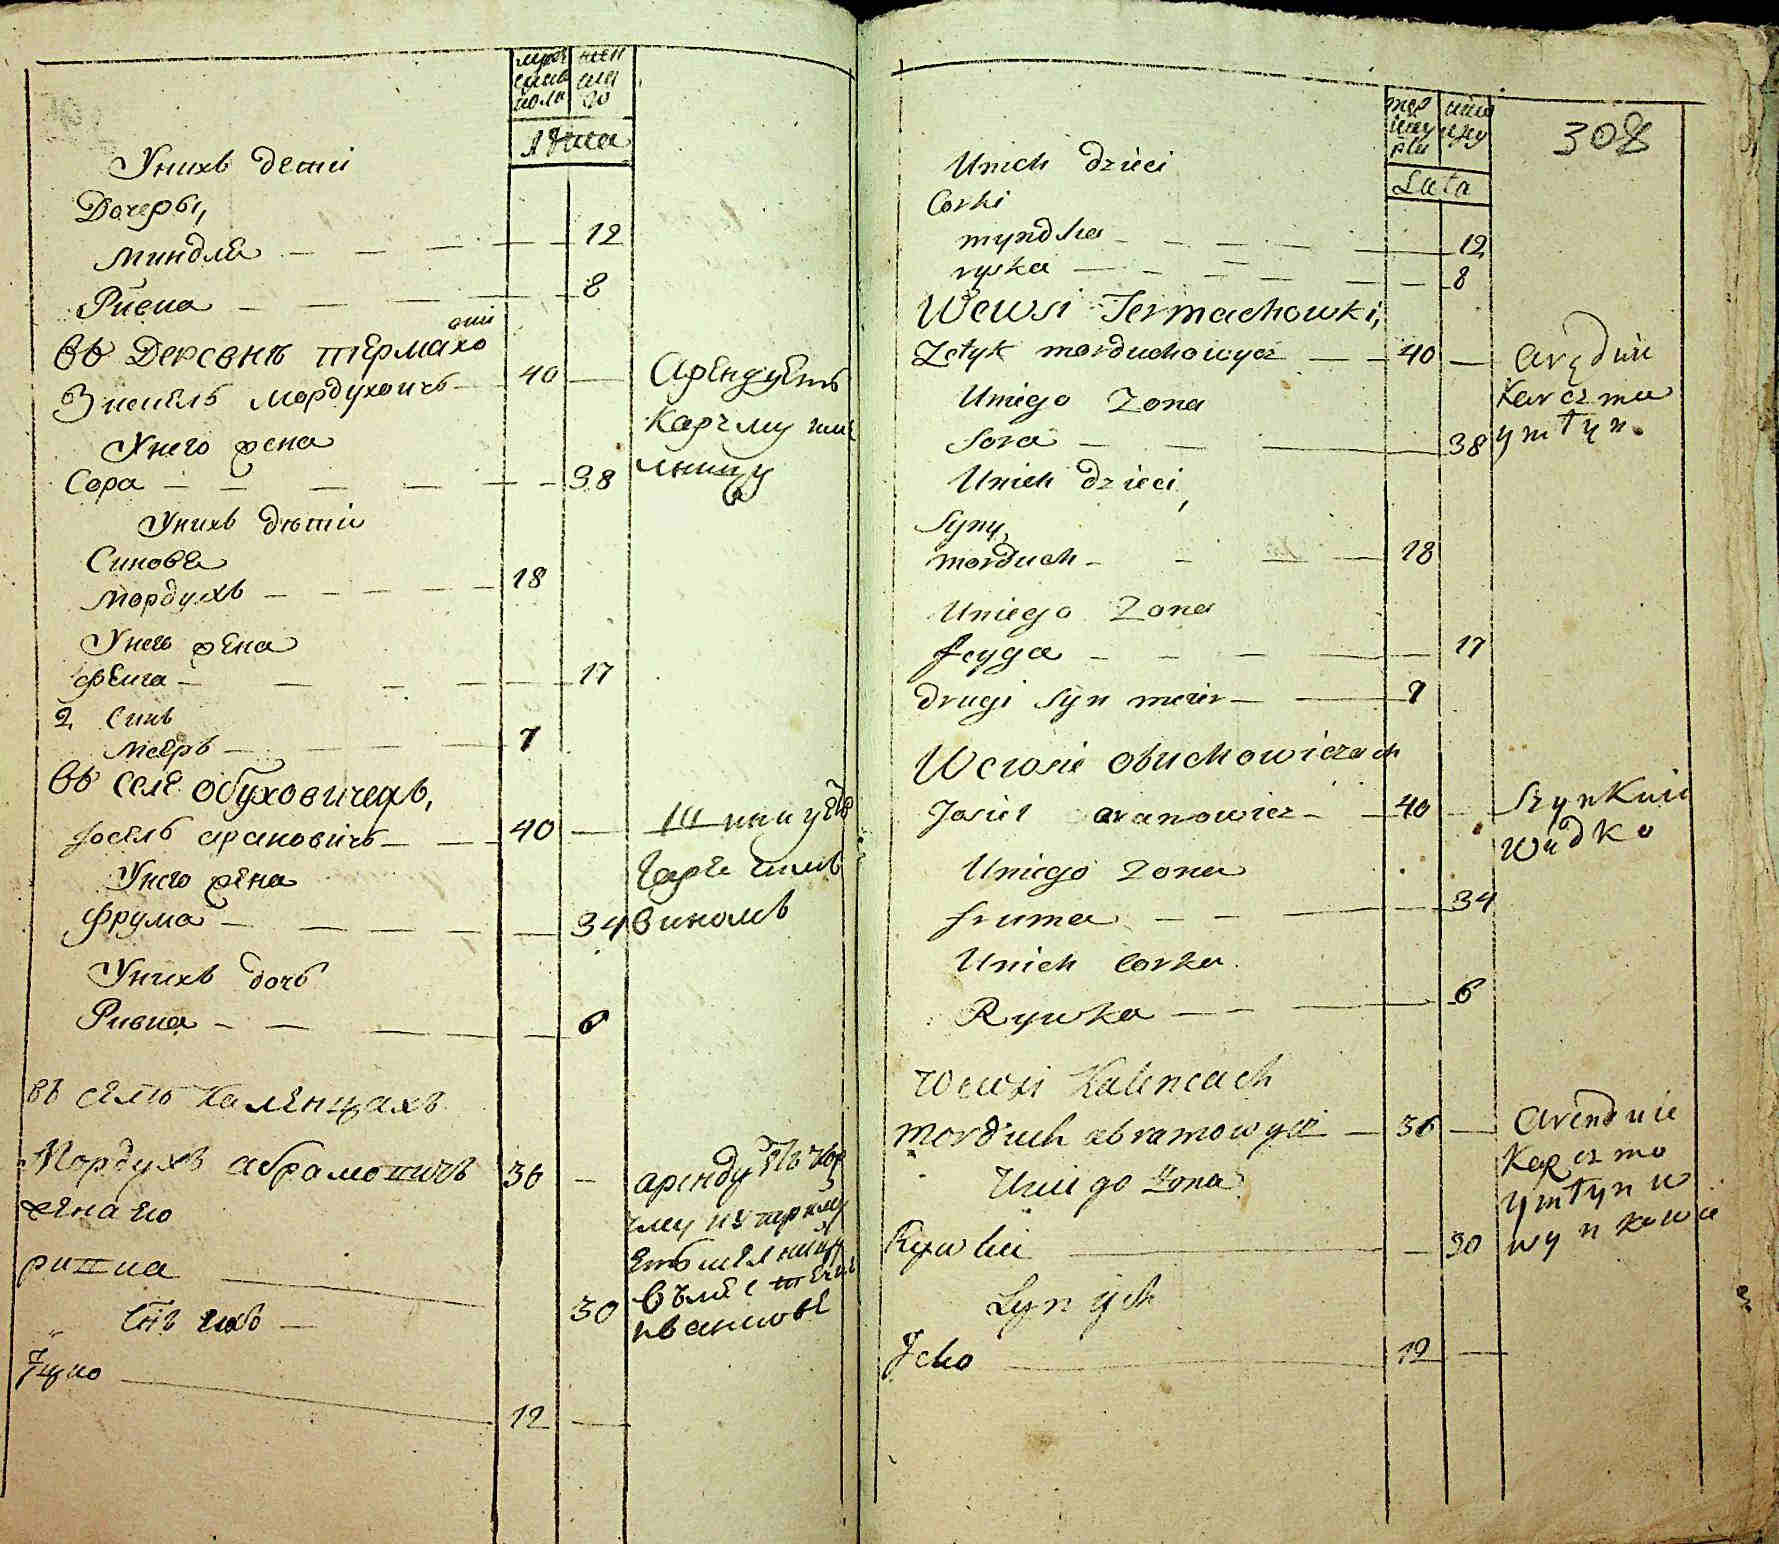 мужеска пола
женска го
Лѣта
Унихъ дети
Дочеры,
Миндля 12
Риска 8
въ деревнѣ термахо
Зисель мордуховичъ 40 — арендуетъ
карчму
Унего жена
Сора 38
Унихъ дѣти
Синовя
мордухъ 18
Унего жена
фейга 17
2 синъ
меерь 7
въ селе обуховичехъ,
Іосель ароновичъ 40 — шинкуетъ
виномъ
Унего жена
фрума 34
Унихъ дочь
Ривка 6
въ селѣ каленцахъ
Мордухъ абрамовичъ 36 — арендуетъ кор
чму
жена ею
ривка 30
Снъ ихъ
Іцко 12
308
Lata
Unich dzieci
Corki
myndla 12
ryska 8
Wewsi Termachowki,
Zelyk morduchowycz 40 — aręduie
Karczma
ymłyn
Uniego Zona
Sora 38
Unich dzieci,
Syny
morduch 18
Uniego Zona
feyga 17
drugi syn meier 7
Wewsie obuchowiczach
Josiel aranowicz 40 — Szynkuie
wudko
Uniego Zona
fruma 34
Unich Corka
Rywka 6
Wewsi Kalencach
Morduch abramowycz 36 — arenduie
Karczmo
ymłyn w
Uniego Zona
Rywka 30
Syn ych
Jcko 12